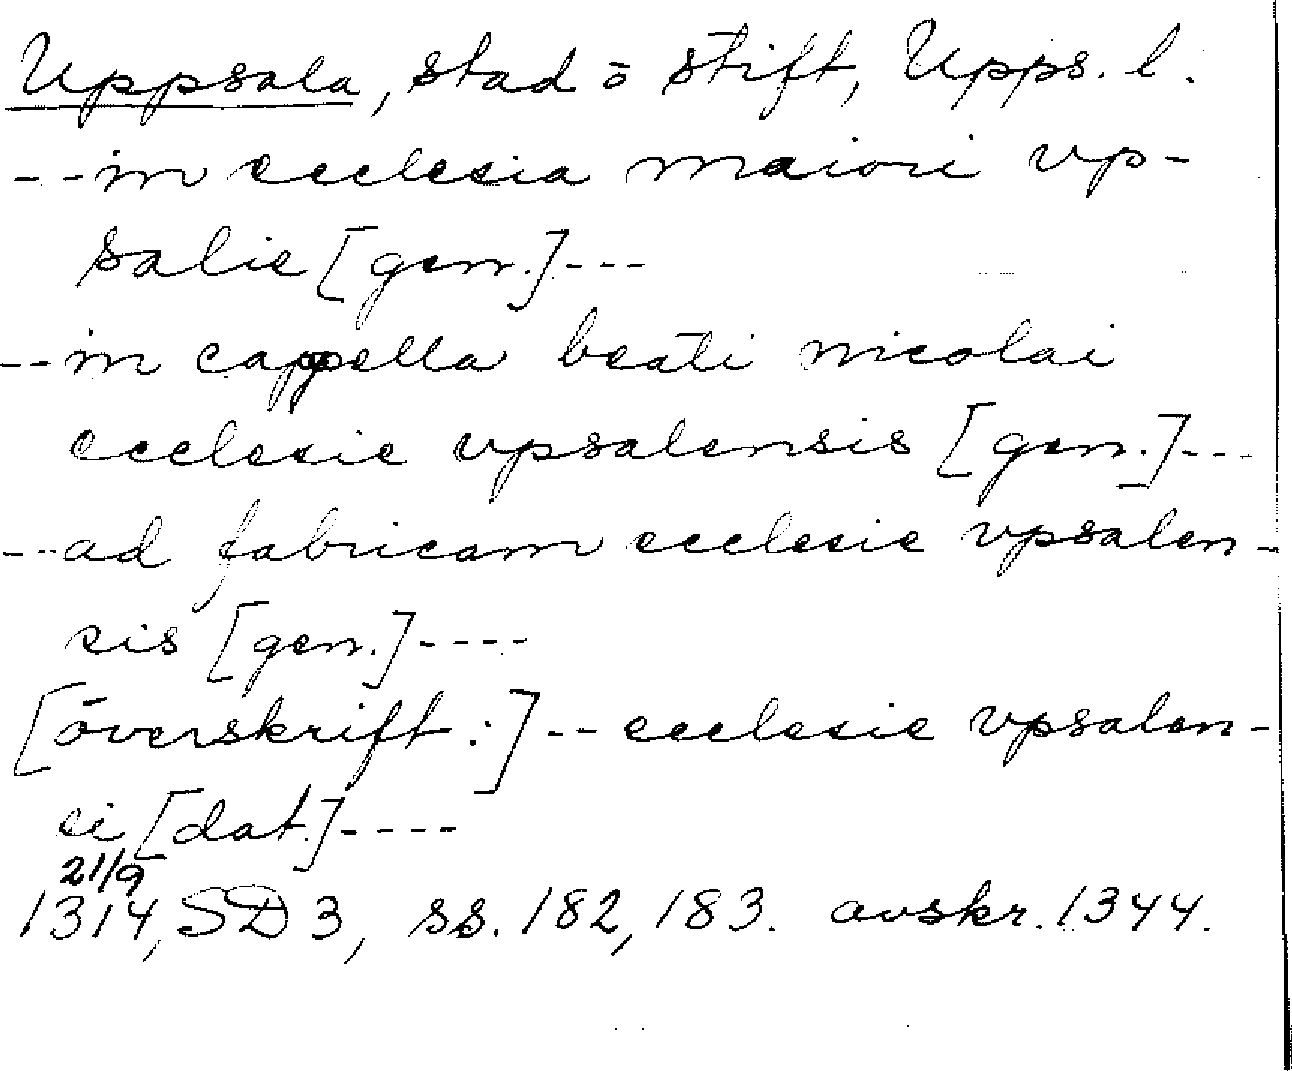 Uppsala, stad o stift, Upps. l.
--in ecclesia maiori vp-
salie [gen.]---
--in cappella beati nicolai
ecclesie vpsalensis [gen.]---
---ad fabricam ecclesie vpsalen-
sis [gen.]----
[överskrift:]--ecclesie vpsalen-
si [dat.]----
21/9
1314, SD 3, ss. 182, 183. avskr. 1344.